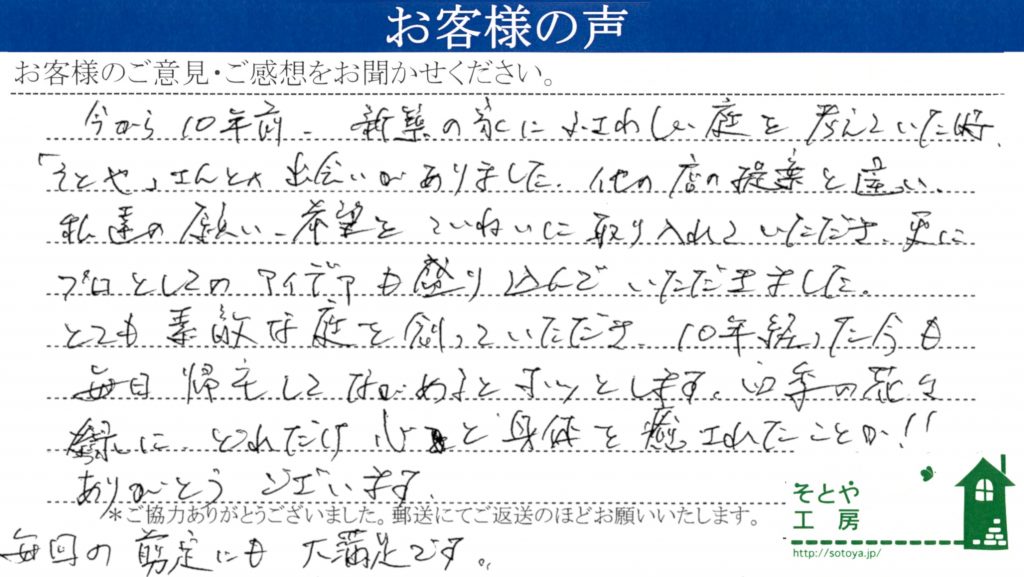 お客様の声
お客様のご意見・ご感想をお聞かせください。
今から10年前、新築の家にふさわしい庭を考えていた時、
「そとや」さんとの出会いがありました。他の店の提案と違い、
私達の願い、希望をていねいに取り入れていただき、更に
プロとしてのアイデアも盛り込んでいただきました。
とても素敵な庭を創っていただき、10年経った今も
毎日帰宅してながめるとホッとします。四季の花々
緑に、どれだけ心と身体を癒されたことか!!
ありがとうございます。
*ご協力ありがとうございました。郵送にてご返送のほどお願いいたします。
毎回の剪定にも大満足です。
そとや
工房
http://sotoya.jp/